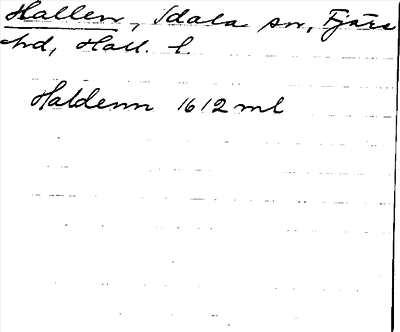 Hallen, Idala sn, Fjäre
hd, Hall. l.
Haldenn 1612 ml